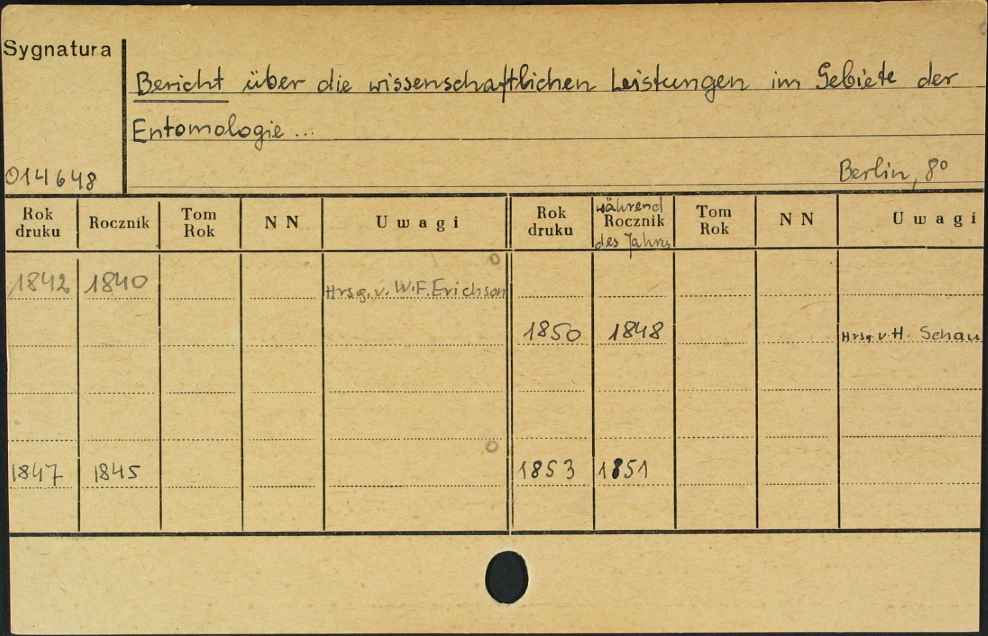 Sygnatura
Bericht über die wissenschaftlichen Leistungen im Gebiete der
Entomologie...
014648
Berlin, 8°
Rok druku Rocznik Tom Rok N N Uwagi Rok druku während Rocznik des Jahres Tom Rok N N Uwagi
1842 1840 Hrsg. v. W.F. Erichson
1850 1848 Hrsg. v. H. Schau
1847 1845 1853 1851